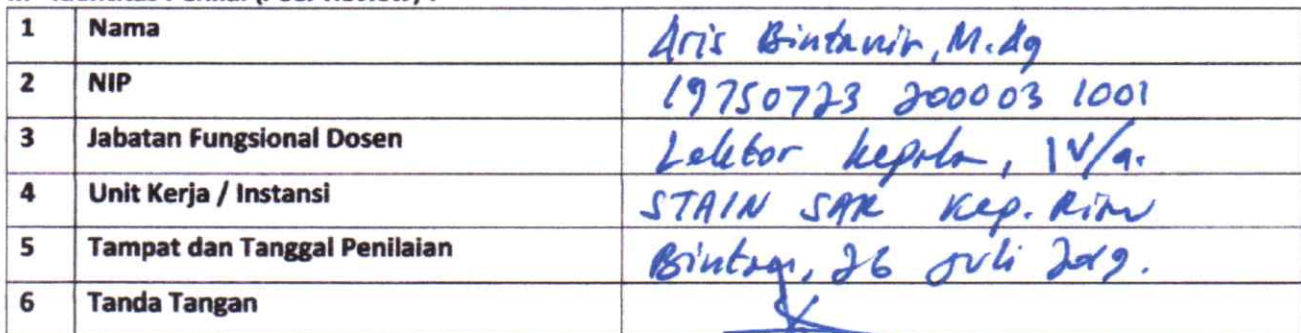 1 Nama Aris Bintania, M.Ag
2 NIP 19750723 200003 1001
3 Jabatan Fungsional Dosen Lektor kepala, IV/a.
4 Unit Kerja / Instansi STAIN SAR Kep. Riau
5 Tampat dan Tanggal Penilaian Bintan, 26 Juli 2019.
6 Tanda Tangan